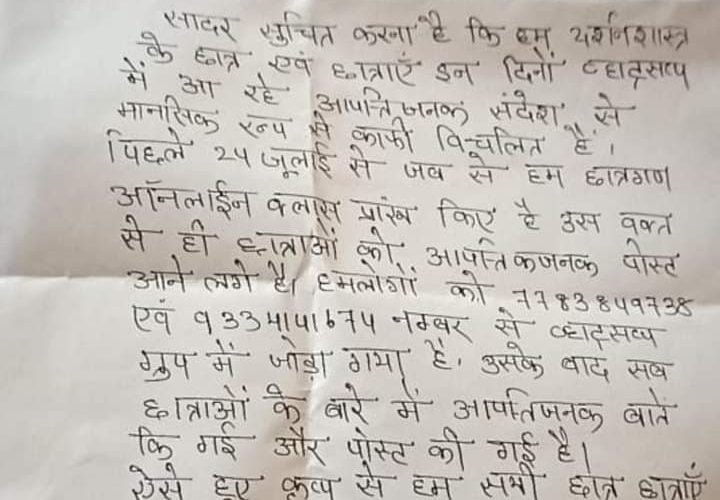 सादर सुचित करना है कि हम दर्शनशास्त्र
के छात्र एवं छात्राएँ इन दिनों व्हाट्सप्प
में आ रहे आपत्तिजनक संदेश से
मानसिक रूप से काफी विचलित है।
पिछले 24 जूलाई से जब से हम छात्रगण
ऑनलाईन क्लास प्रारंभ किए है उस वक्त
से ही छात्राओं को आपत्तिकजनक पोस्ट
आने लगे है। हमलोगों को 7783849738
एवं 9334141674 नम्बर से व्हाट्सप्प
ग्रुप में जोड़ा गया है, उसके बाद सब
छात्राओं के बारे में आपतिजनक बातें
कि गई और पोस्ट की गई है।
ऐसे हुए कृत्य से हम सभी छात्र छात्राएँ